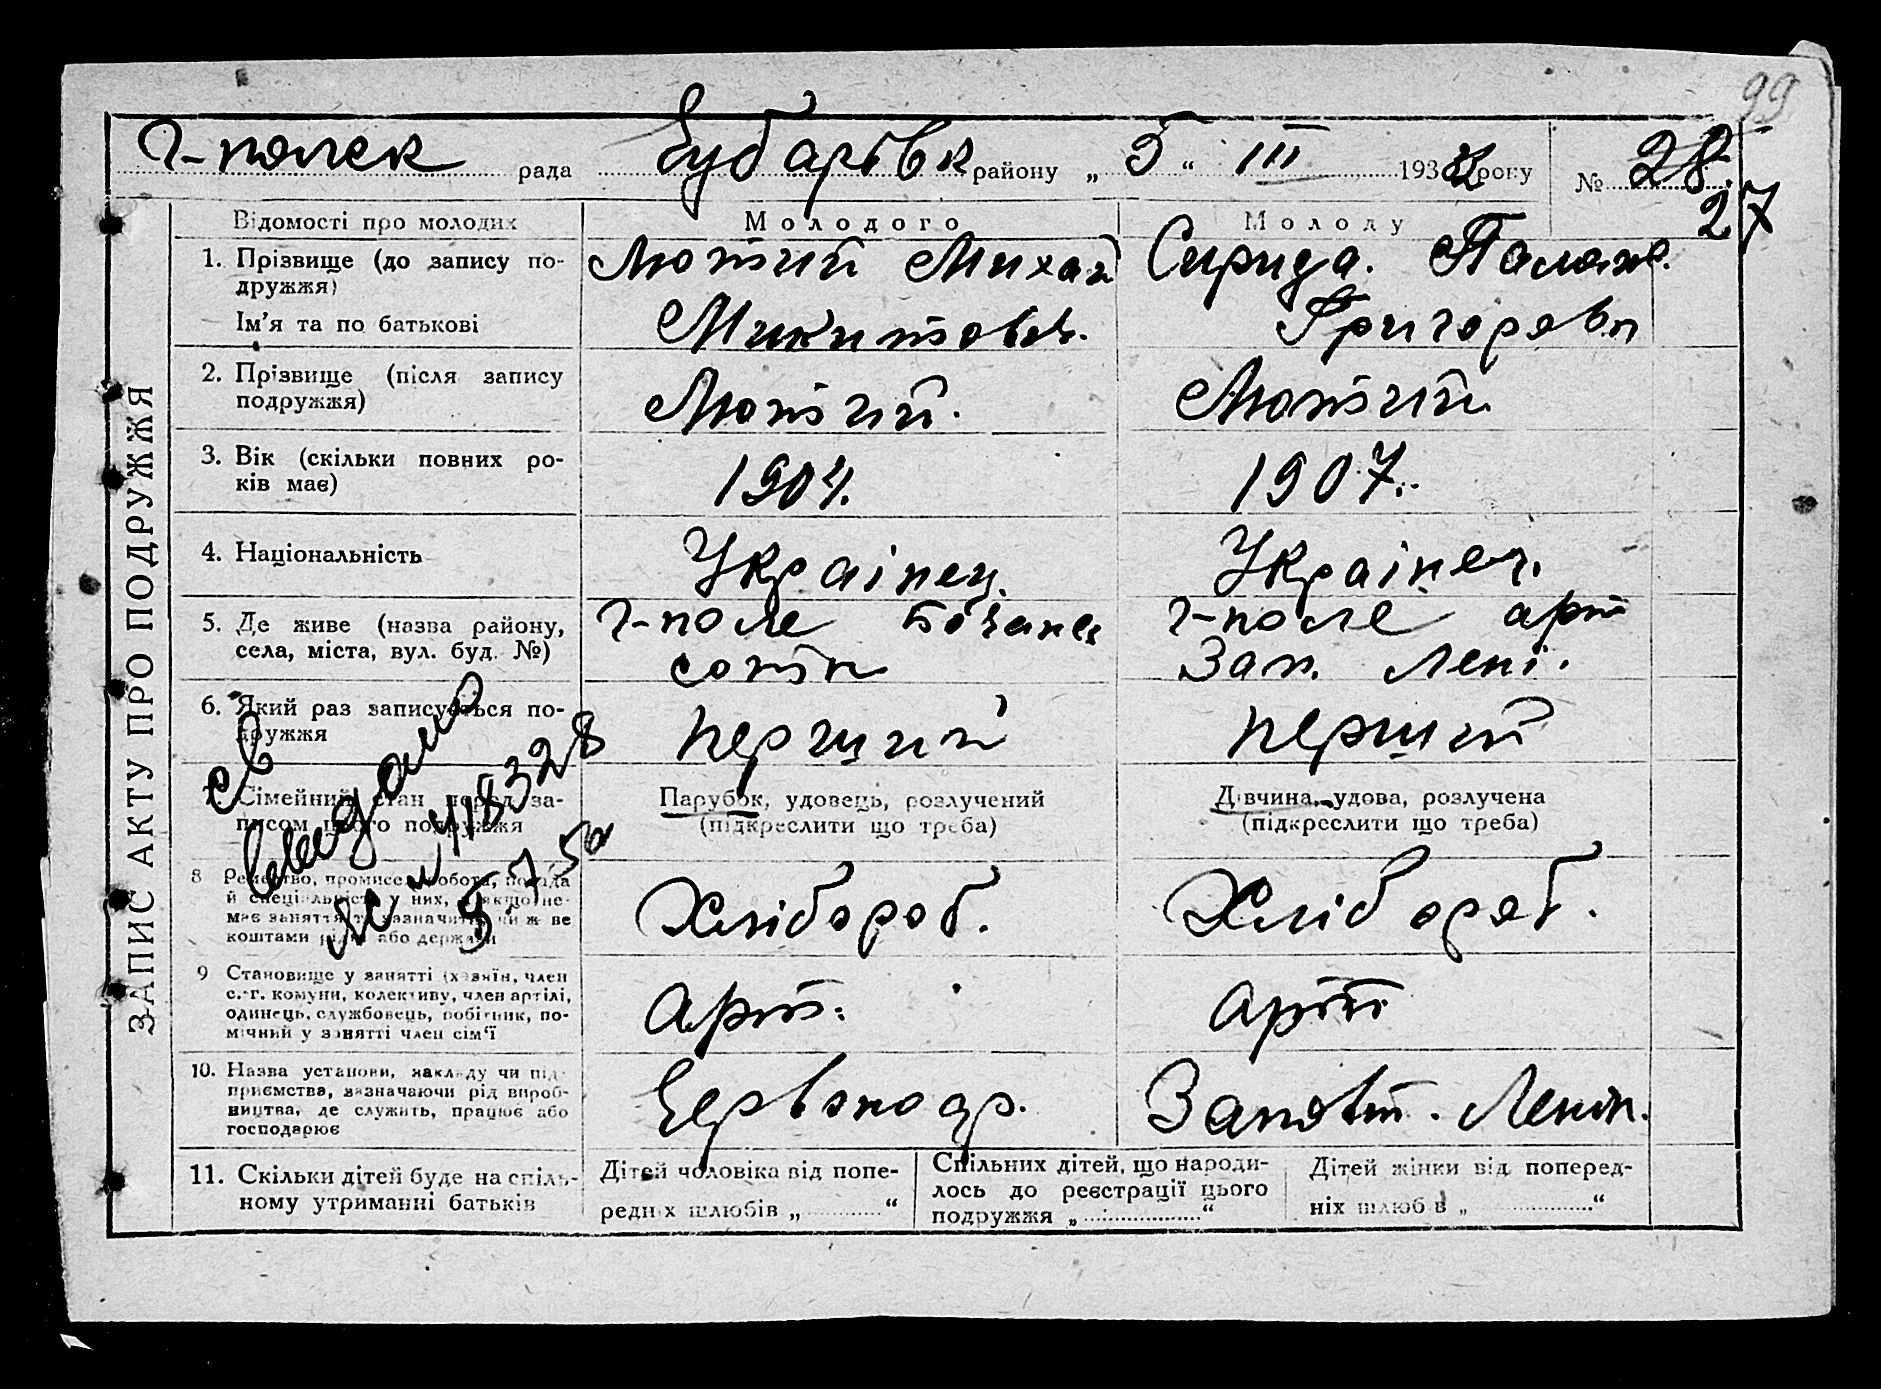 99
Г-полек рада Чубарівк району „ 5 “ III 1932 року № 28.
27
ЗАПИС АКТУ ПРО ПОДРУЖЖЯ
Відомості про молодих
Молодого
Молоду
1. Прізвище (до запису по-
дружжя)
Ім'я та по батькові
Лютий Михай
Микитов.
Сирида. Палаж.
Григоровн
2. Прізвище (після запису
подружжя)
Лютий.
Лютий
3. Вік (скільки повних ро-
ків має)
1907.
4. Національність
Украінец.
Украінец.
5. Де живе (назва району,
села, міста, вул. буд. №)
Г-поле
сотн
Г-поле арт
Зап. Лені.
6. Який раз записується по-
дружжя
першый
першый
7. Сімейний стан перед за-
писом цього подружжя
Парубок, удовець, розлучений
(підкреслити що треба)
Дівчина, удова, розлучена
(підкреслити що треба)
8 Ремество, промисел, робота, посада
й спеціальність у них, якщо не-
має заняття, то зазначити, чи ж ве
коштами рідні або держави
Хлібороб.
Хлібороб.
9 Становище у занятті (хазяїн, член
с.-г. комуни, колективу, член артілі,
одинець, службовець, робітник, по-
мічний у занятті член сім'ї
Арт.
Арт
10. Назва установи, закладу чи під-
приємства, зазначаючи рід вироб-
ництва, де служить, працює або
господарює
Запові. Ленін.
11. Скільки дітей буде на спіль-
ному утриманні батьків
Дітей чоловіка від попе-
редніх шлюбів „ “
Спільних дітей, що народи-
лось до реєстрації цього
подружжя „ “
Дітей жінки від поперед-
ніх шлюбів „ “
св
выдано
418328